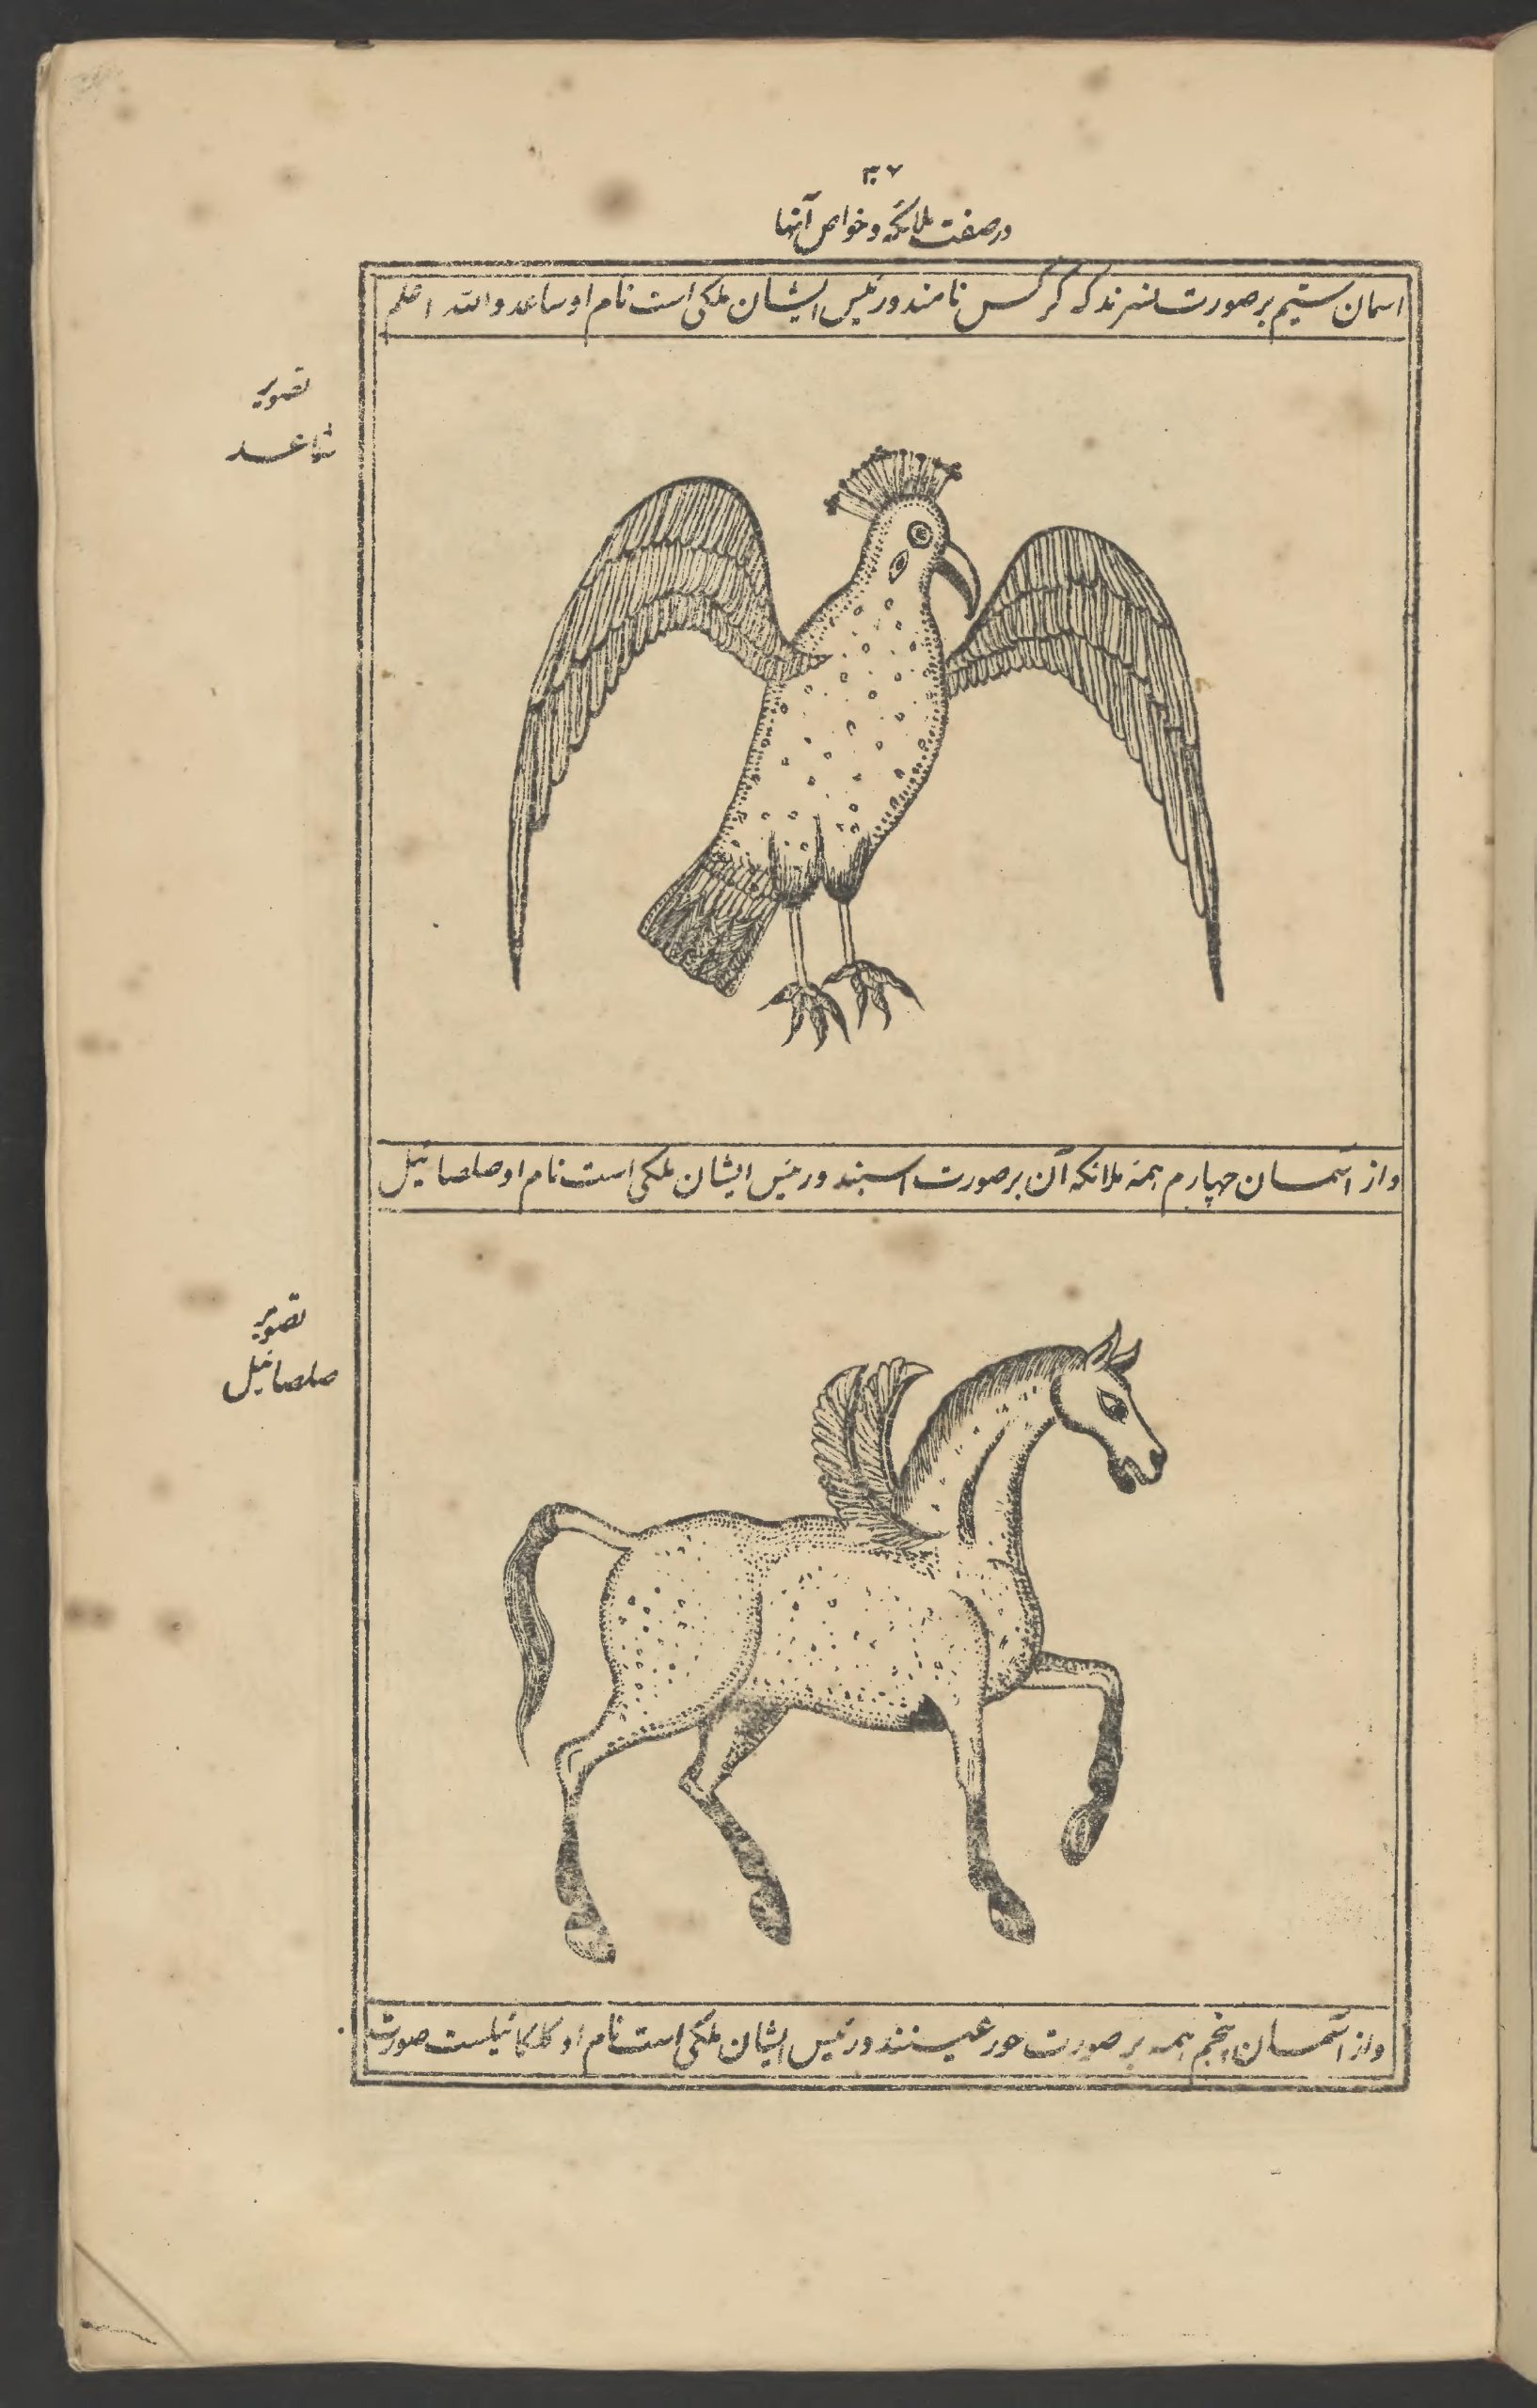 ۳۰۷
در صفت ملائکه و خواص آنها
اسمان سیم بر صورت نسرند که کرکس نامند و رئیس ایشان ملکی است نام او ساعد والله اعلم
تصویر
شاعد
و از آسمان چهارم همه ملائکه آن بر صورت اسپند و رئیس ایشان ملکی است نام او صلصائیل
تصویر
صلصائیل
و از آسمان پنجم همه بر صورت حور عینند و رئیس ایشان ملکی است نام او کلکائیلست صورت